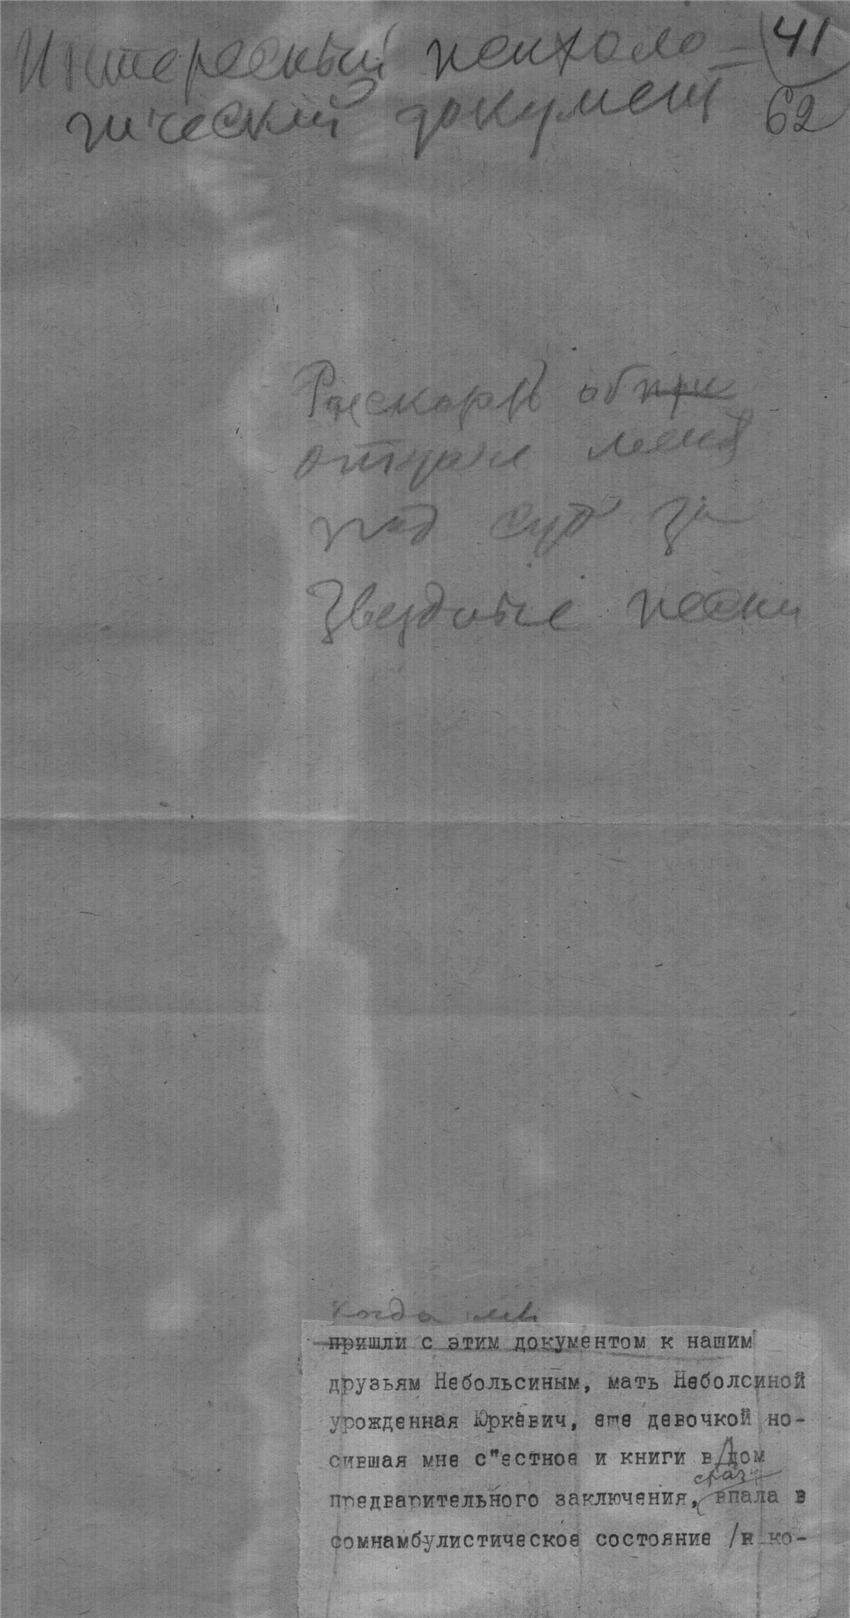 Интересный психоло- 41
гический документ 62
Рассказъ об при
отдаче меня
под суд за
Звездные песни
Когда мы
пришли с этим документом к нашим
друзьям Небольсиным, мать Неболсиной
урожденная Юркевич, еще девочкой но-
сившая мне с"естное и книги в Дом
сразу
предварительного заключения, впала в
сомнамбулистическое состояние /к ко-